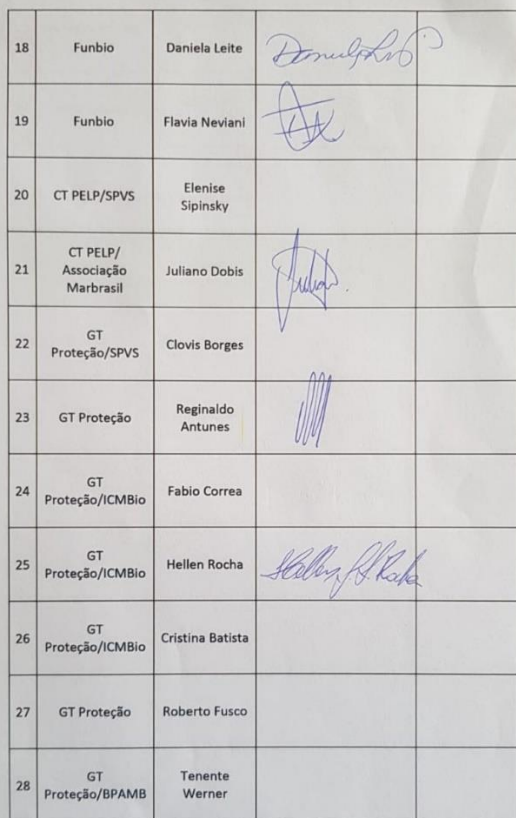 18 Funbio Daniela Leite
19 Funbio Flavia Neviani
20 CT PELP/SPVS Elenise
Sipinsky
21 CT PELP/
Associação
Marbrasil Juliano Dobis
22 GT
Proteção/SPVS Clovis Borges
23 GT Proteção Reginaldo
Antunes
24 GT
Proteção/ICMBio Fabio Correa
25 GT
Proteção/ICMBio Hellen Rocha
26 GT
Proteção/ICMBio Cristina Batista
27 GT Proteção Roberto Fusco
28 GT
Proteção/BPAMB Tenente
Werner